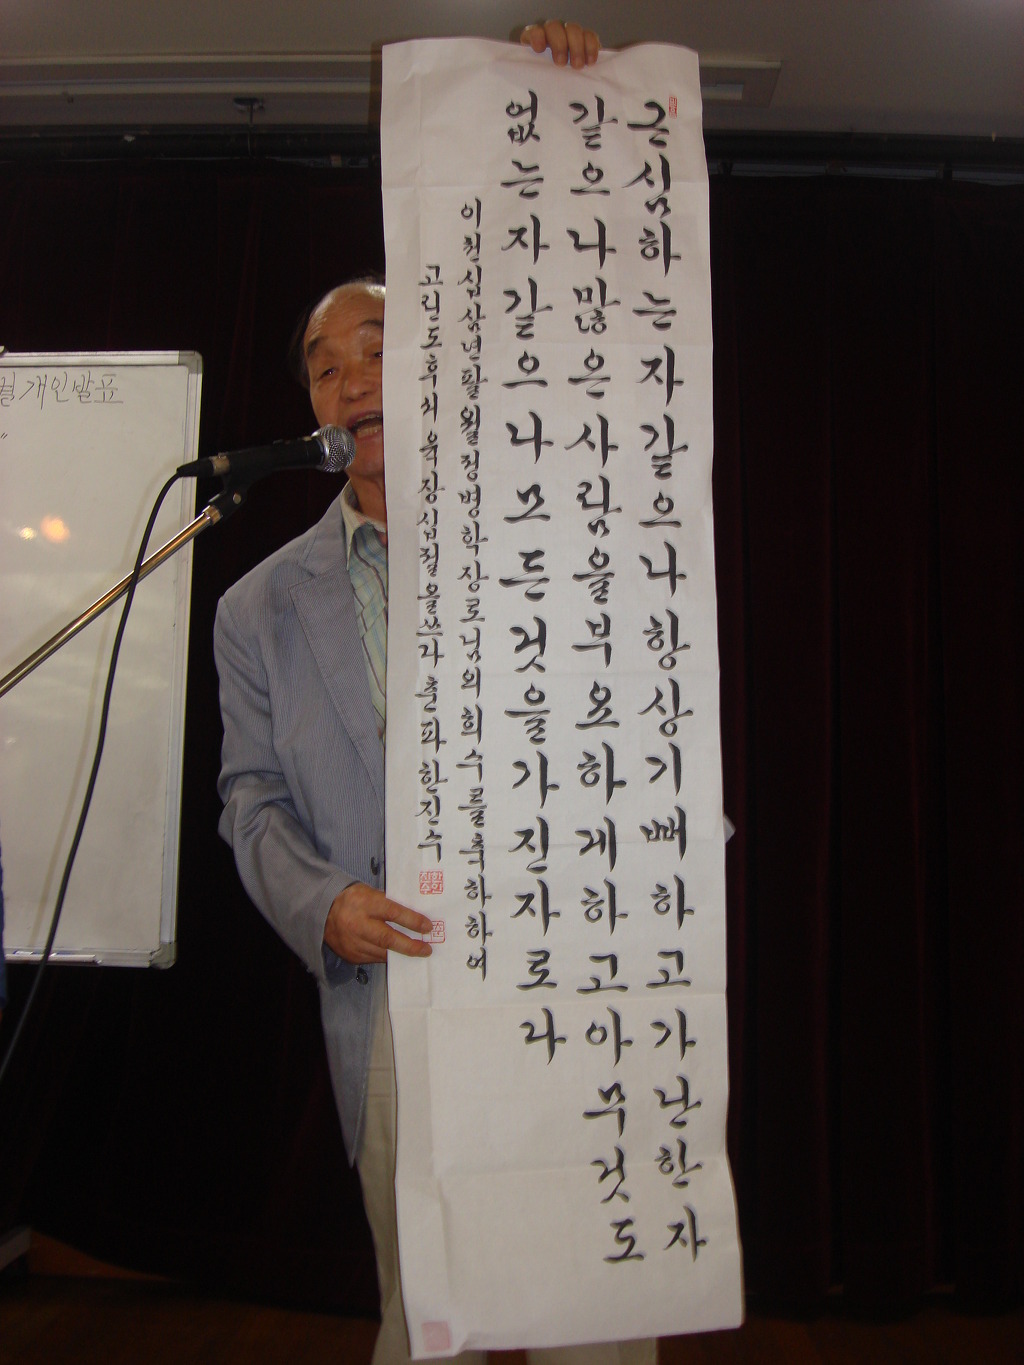 근심하는자같으나항상기뻐하고가난한자
같으나많은사람을부요하게하고아무것도
없는자같으나모든것을가진자로라
이천십삼년팔월정병학장로님의희수를축하하여
고린도후서육장십절을쓰다 한진수
개인발표